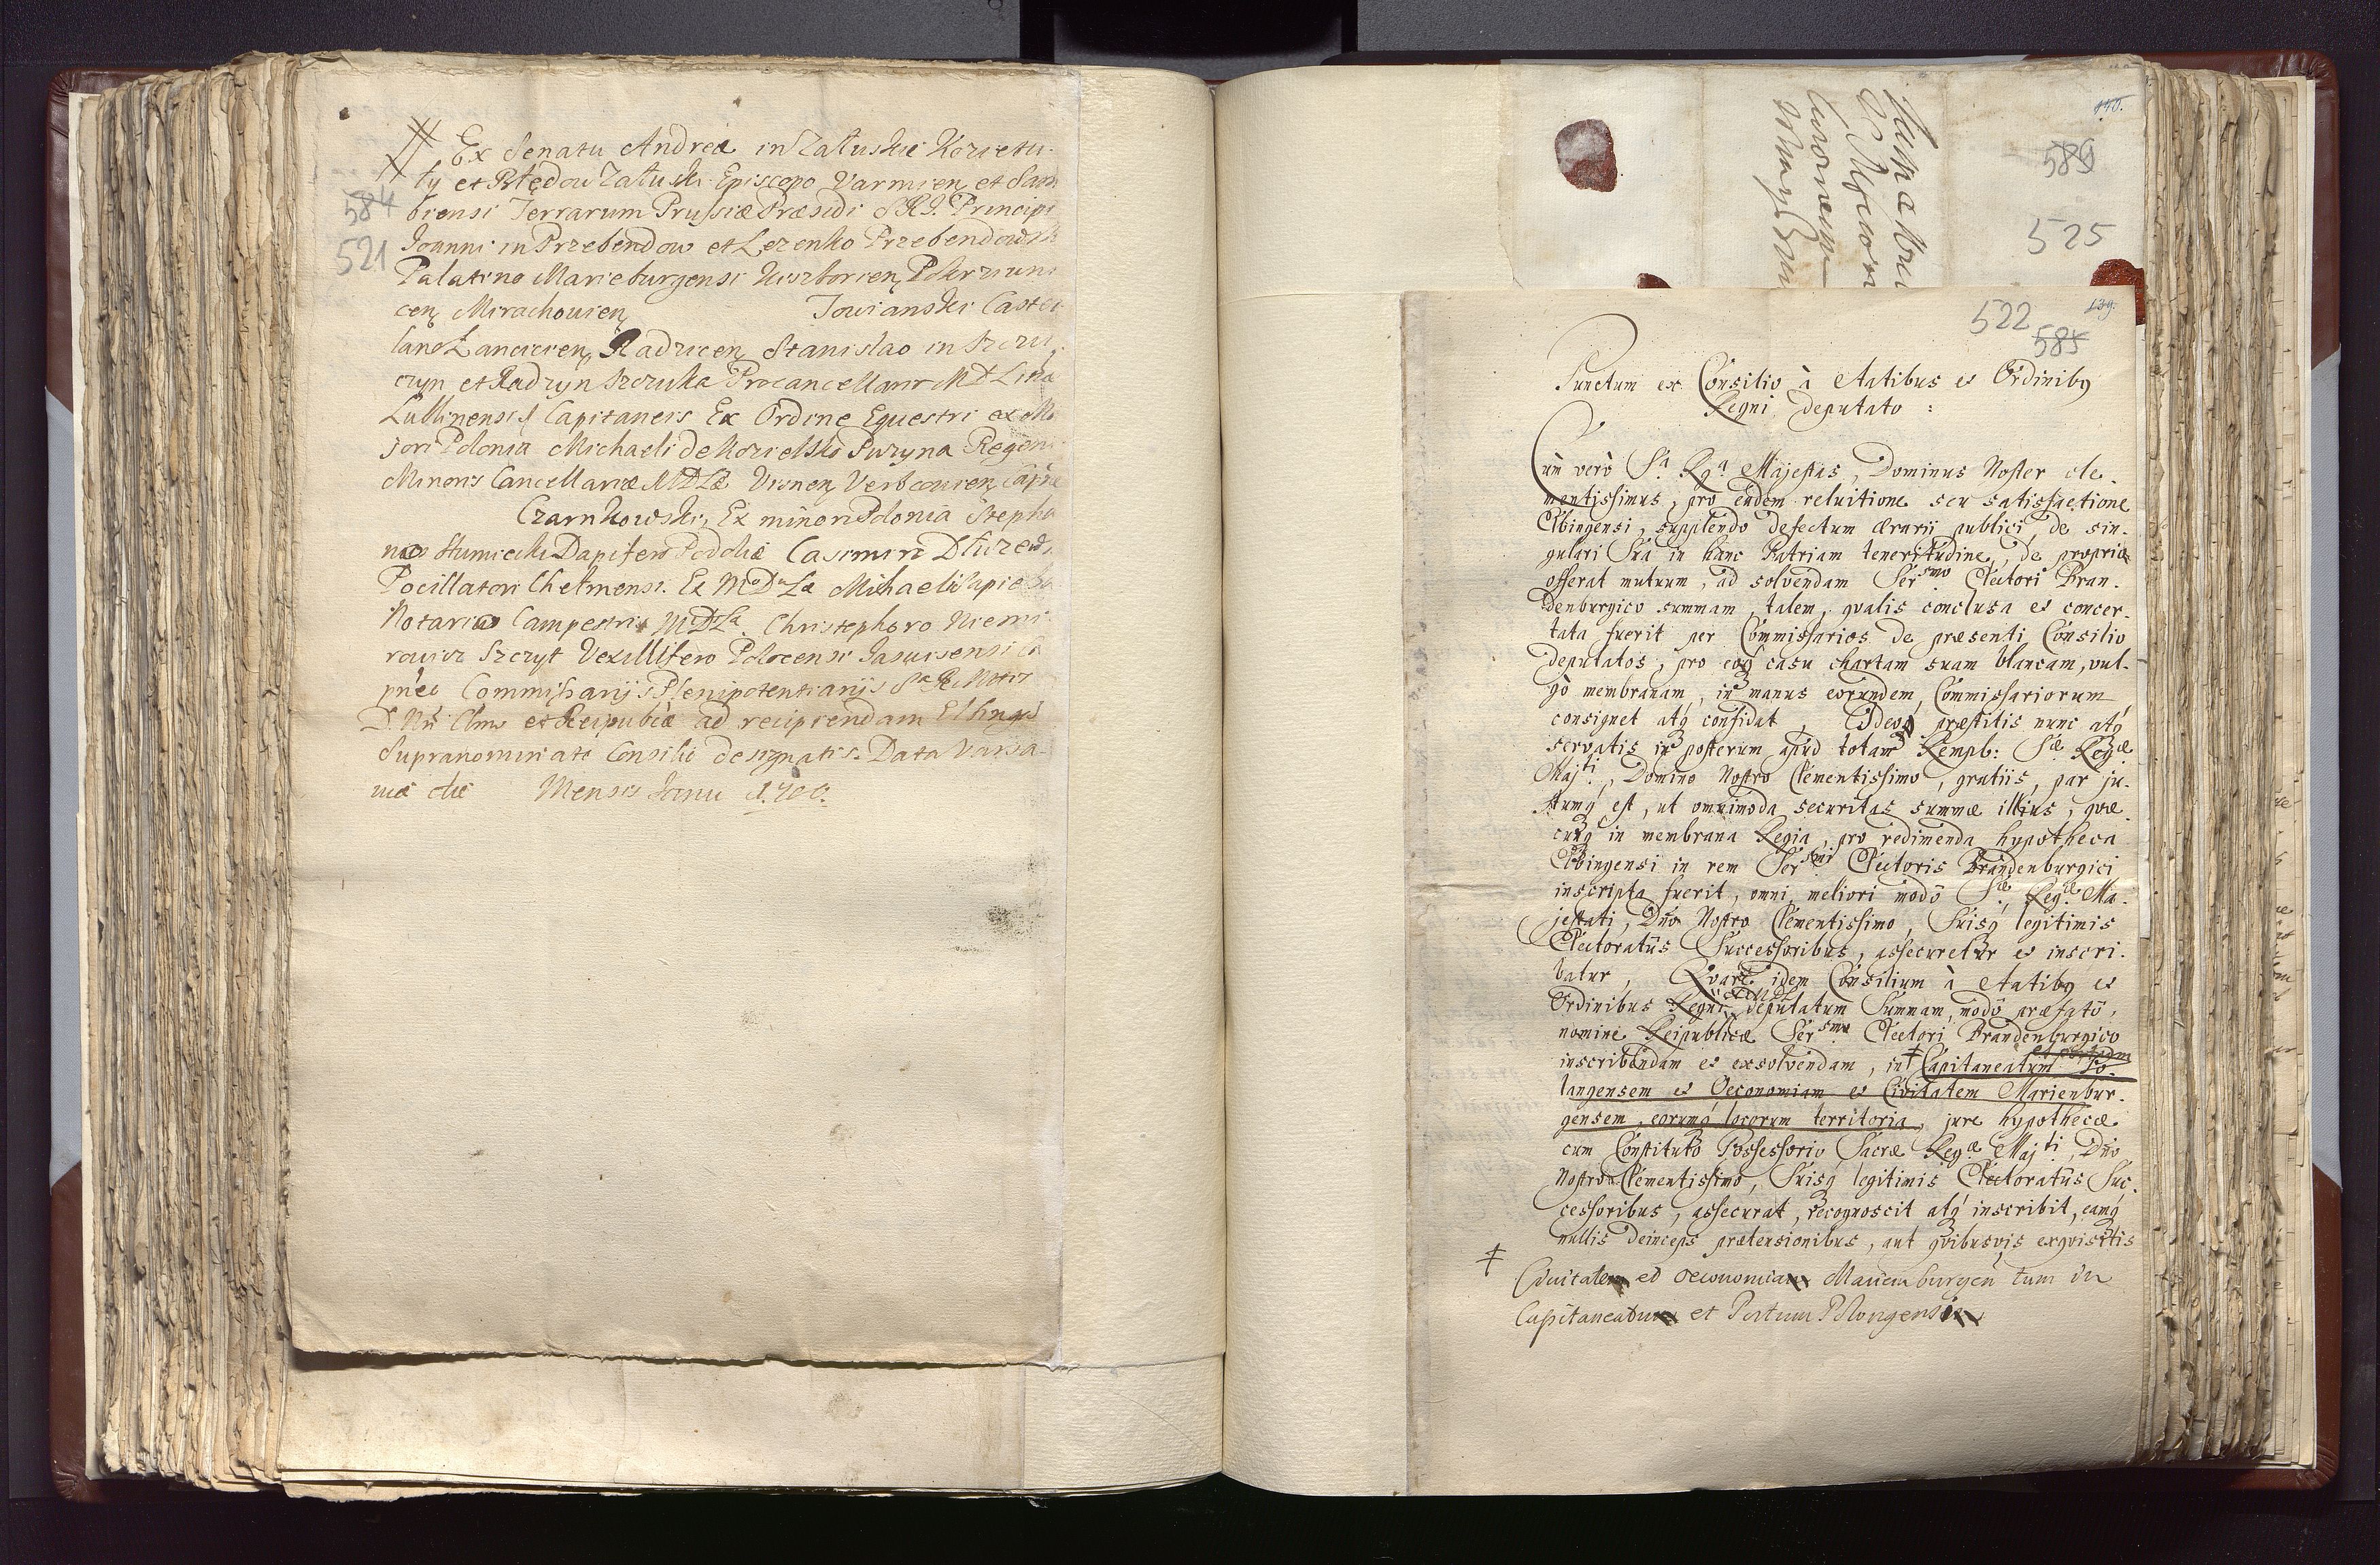 Ex Senatu Andreæ in Załuskie Kozietu-
ły et Błędow Załuski Episcopo Varmien et Sam
584
biensi Terrarum Prussiæ Præsidi S.R.I. Principi
521
Joanni in Przebendow et Lezenko Przebendowski
Palatino Marieburgensi
cen Mirachovien Towianski Castel
lano Lancicien, Radzicen Stanislao in Szczu
czyn et Radzyn Szczuka Procancellario MDLitæ
Lublinensi Capitaneis Ex Ordine Equestri ex Ma
jori Polonia Michaeli de Kozielsko Puzyna Regen
Minoris Cancellariæ MDLæ Visnen Capne
Czarnkowski, Ex minori Polonia Stepha
no Humiecki Dapifero Podoliæ Casimiro
Pocillatori Chelmensi. Ex MoDuLæ Michaeli Sapieha
Notario Campestri MDLæ Christophoro Niemi
rowicz Szczyt Vexillifero Polocensi Jasuisensi Ca
pneo Commissarijs Plenipotentiarijs Sæ R Mttis
D. Nri Clmi et Reipublcæ ad recipiendam Elbingæ
Supranominate Consilii designatis. Data Varsa-
viæ die Mensis Janu 1700.
140.
589
525
139.
522
585
Punctum ex Consilio à Statibus et Ordinibq
Regni deputato :
Cùm verò Sa. Rga Majestas, Dominus Noster cle-
mentissimus, pro eâdem reluitione seu satisfactione
Elbingensi, supplendo defectum ærarii publici, de sin-
gulari Suâ in hanc Patriam teneritudine, de propria
offerat mutuum, ad solvendam Sersmo Electori Bran-
denburgico summam, talem, qvalis conclusa et concer-
tata fuerit per Commissarios de præsenti Consilio
deputatos, pro eoq casu chartam suam blancam, vul-
gò membranam, in manus eorundem Commissariorum
consignet atq confidat, Ideoq præstitis nunc atq
servatis in posterum apud totam Rempb: Sæ Regæ
Majti, Domino Nostro Clementissimo, gratiis, par ju-
stumq est, ut omnimoda securitas summæ illius, qvæ-
cunq in membrana Regia, pro redimenda hypotheca
Elbingensi in rem Sersmi Electoris Brandenburgici
inscripta fuerit, omni meliori modô Sæ. Regæ Ma-
jestati, Dno Nostro Clementissimo, Suisq legitimis
Electoratûs Successoribus, assecuretur et inscri-
batur, Qvare idem Consilium à Statibq et
Ordinibus Regni deputatum Summam, modô præfatô,
nomine Reipublicæ Sersmo Electori Brandenburgico
inscribendam et exsolvendam, in ‡ Capitaneatum et portum Po-
langensem et Oeconomiam et Civitatem Marienbur-
gensem, eorumq locorum territoria, jure hypothecæ
cum Constituto Possessorio Sacræ Regæ Majti, Dno
Nostro Clementissimo, Suisq legitimis Electoratûs Suc-
cessoribus, assecurat, recognoscit atq inscribit, eamq
nullis deinceps prætensionibus, aut qvibusvis exqvisitis
‡ Civitatem et oeconomiam Marienburgen tum in
Capitaneatum et Portum Polongensem